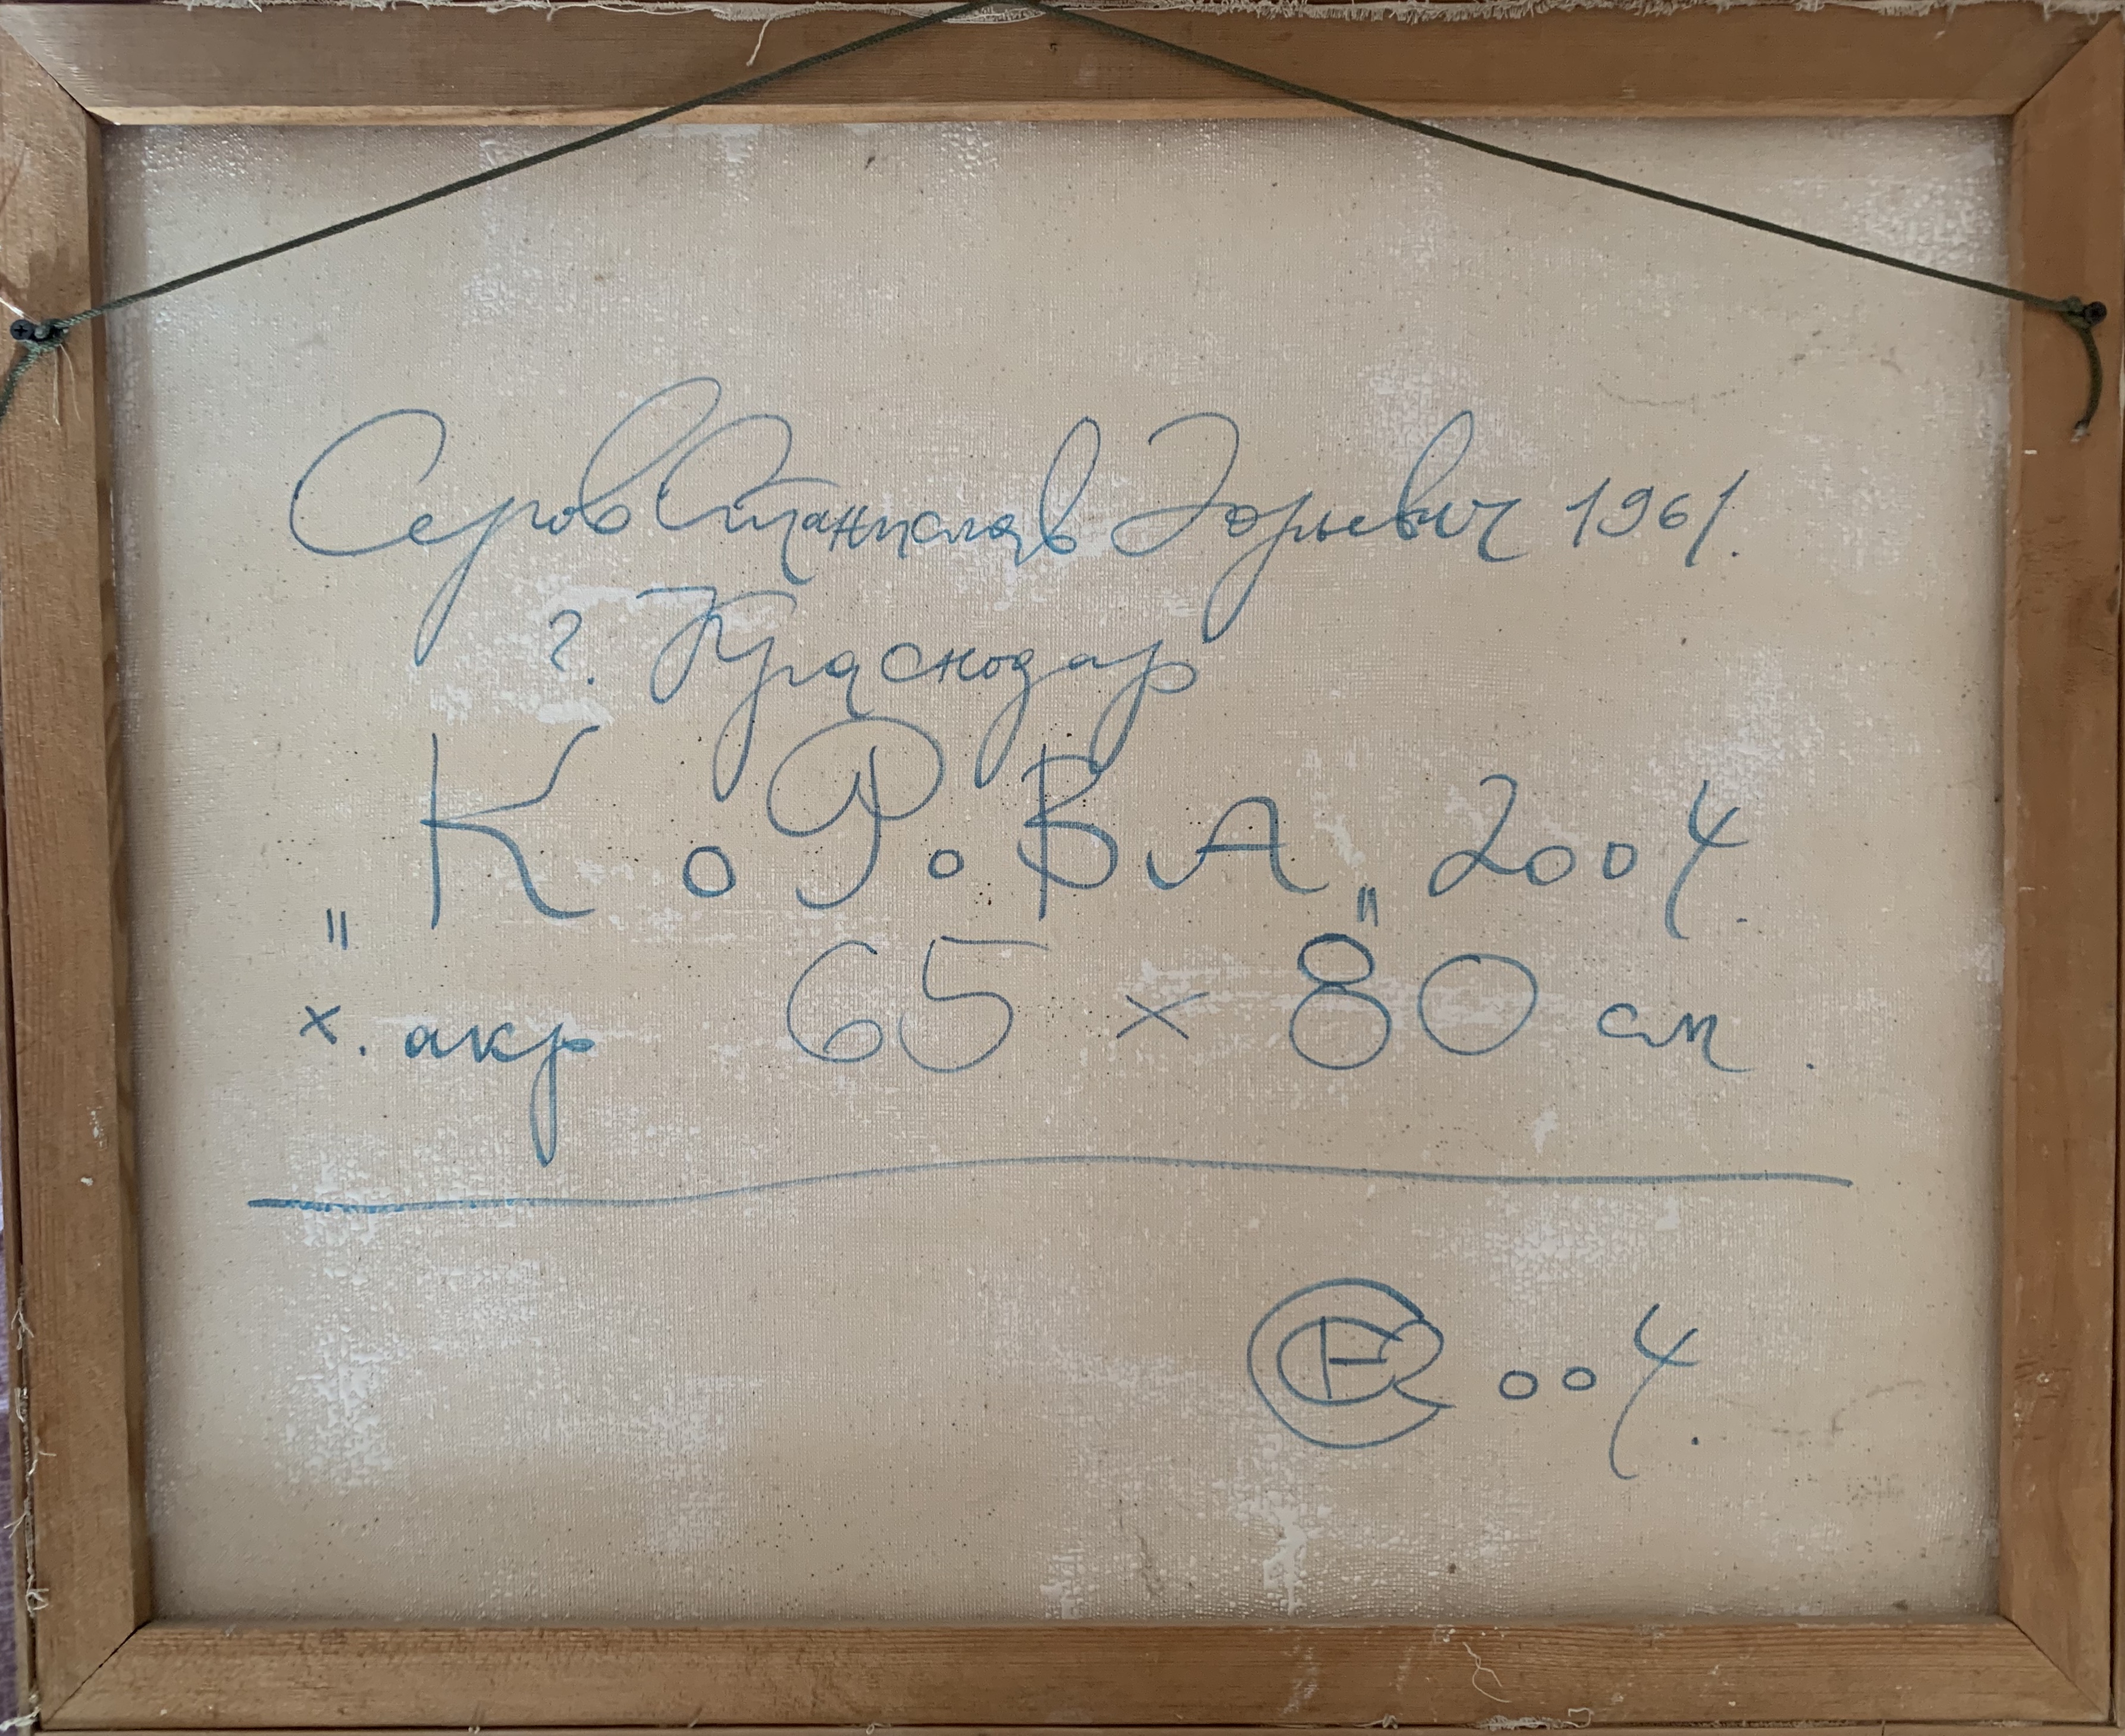 Серов Станислав Юрьевич 1961.
г. Краснодар
"КоРоВА" 2004.
х. акр 65 × 80 см.
004.